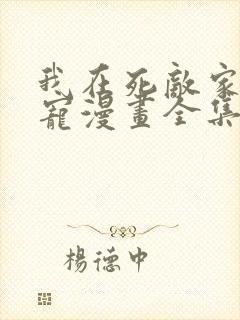 我在死敵家
寵漫畫全集
楊德中